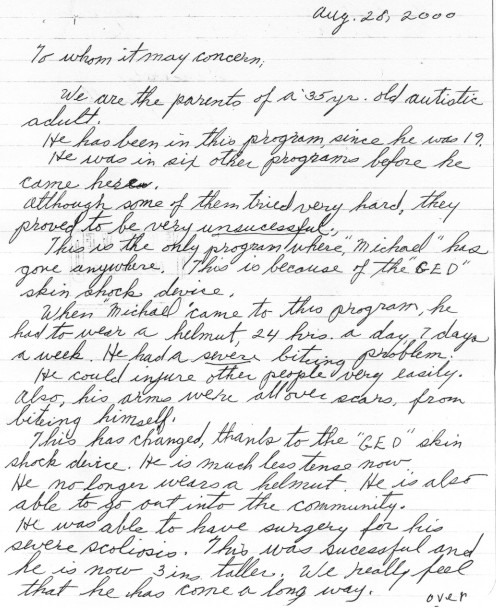 Aug. 28, 2000
To whom it may concern;
We are the parents of a 35 yr. old autistic
adult.
He has been in this program since he was 19.
He was in six other programs before he
came here.
Although some of them tried very hard, they
proved to be very unsucessful.
This is the only program where, "Michael" has
gone anywhere. This is because of the "GED"
skin shock device.
When "Michael" came to this program, he
had to wear a helmut, 24 hrs. a day, 7 days
a week. He had a severe biteing problem.
He could injure other people very easily.
Also, his arms were all over scars, from
biteing himself.
This has changed, thanks to the "GED" skin
shock device. He is much less tense now.
He no longer wears a helmut. He is also
able to go out into the community.
He was able to have surgery for his
severe scoliosis. This was sucessful and
he is now 3 ins. taller. We really feel
that he has come a long way.
over